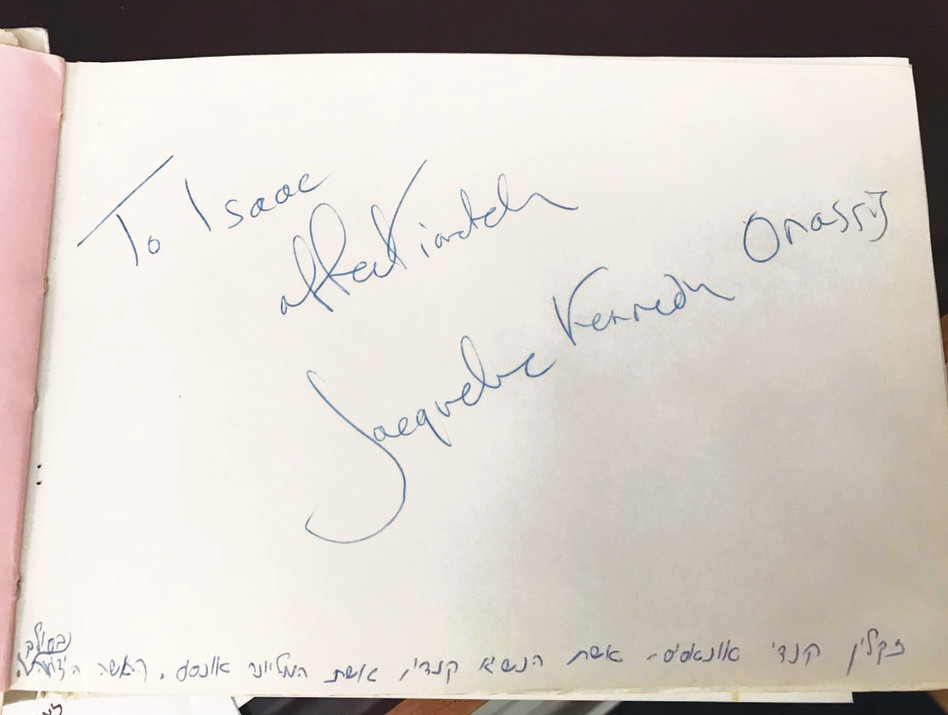 To Isaac
affectionately
Jacqueline Kennedy Onassis
ז'קלין קנדי אונאסיס - אשת הנשיא קנדי, אשת המליונר אונסס. האשה הידועה